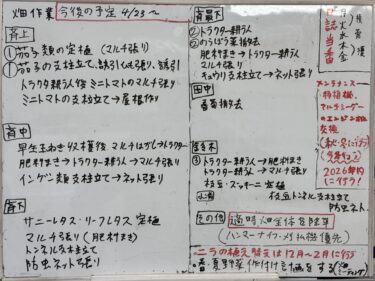 畑作業 今後の予定 4/23~
斉上
①茄子類の定植 マルチ張り
①茄子の支柱立て、誘引ひも張り、誘引
トラクタ耕うん後ミニトマトのマルチ張り
ミニトマトの支柱立て→屋根作り
斉中
早生玉ねぎ収穫後マルチはがし→トラクター
肥料まき→トラクター耕うん→マルチ張り
インゲン類支柱立て→ネット張り
斉下
サニーレタス・リーフレタス定植
マルチ張り(肥料まき)
トンネル支柱立て
防虫ネット張り
斉最下
②トラクター耕うん
②のらぼう菜撤去
肥料まき→トラクター耕うん
マルチ張り
キュウリ支柱立て→ネット張り
田中
③トラクター耕うん→肥料まき
トラクター耕うん→マルチ張り
枝豆・ズッキーニ定植
枝豆トンネル支柱立て
防虫ネット
その他 適時畑全体を除草
(ハンマーナイフ・刈払機優先)
・ニラの植え替えは12月~2月に行う
日誌当番
月
火
水
木
金
メンテナンス
マルチシーダー
のエンジン組
交換
2026年の
に行う!